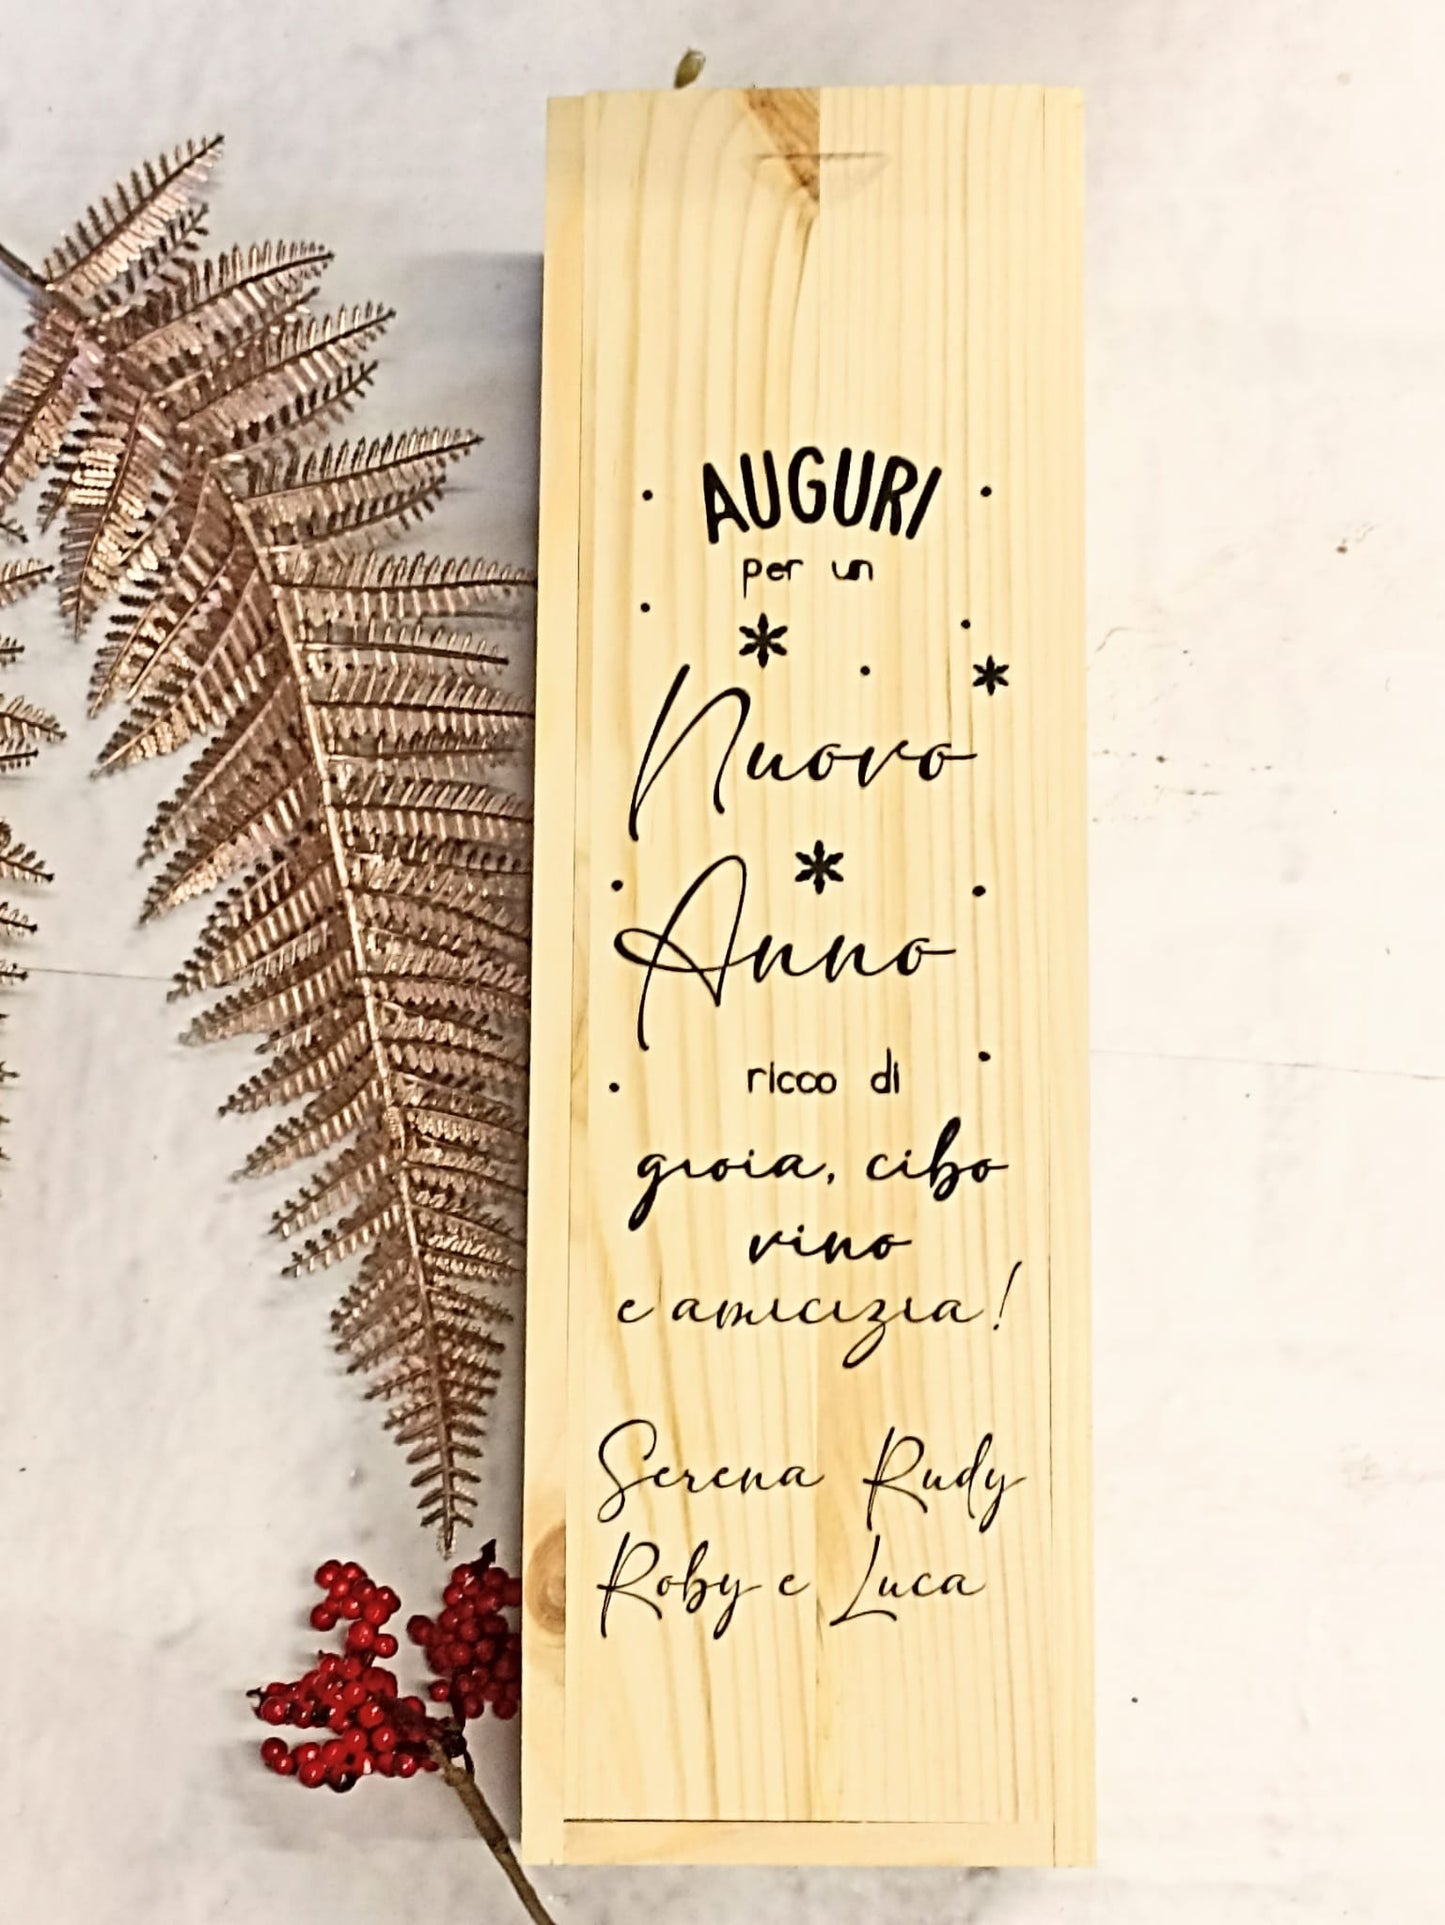 AUGURI
per un
Nuovo
Anno
ricco di
gioia, cibo
vino
e amicizia!
Serena Rudy
Roby e Luca